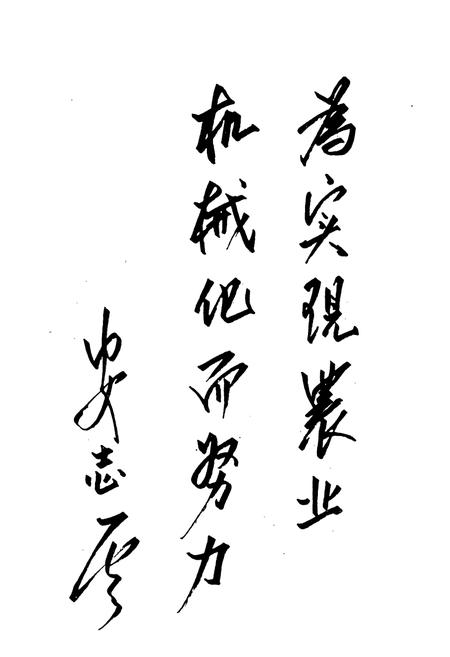 為实現農业
机械化而努力
安志